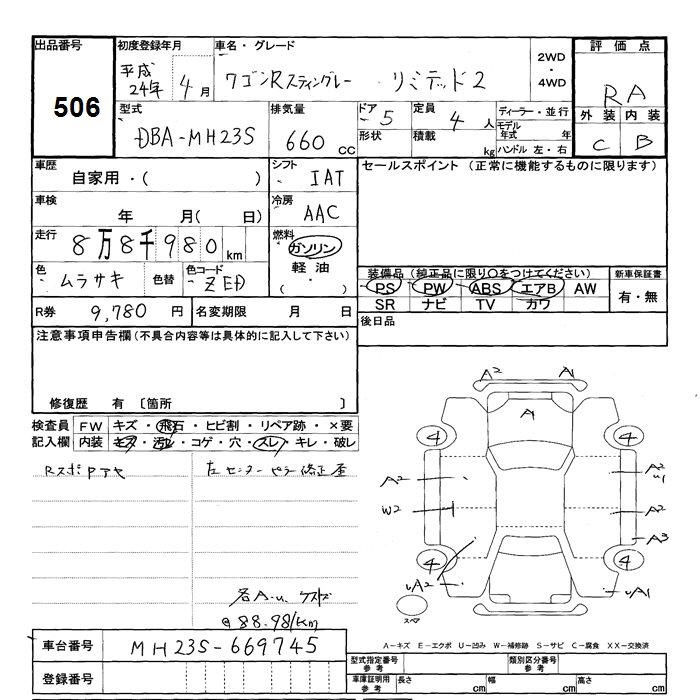 出品番号 初度登録年月 車名・グレード 評価点
506 平成24年 4月 ワゴンRスティングレー リミテッド2 2WD・4WD RA
型式 排気量 ドア 5 定員 4人 ディーラー・並行 外装 内装
DBA-MH23S 660cc 形状 積載 kg モデル年式 年 C B
ハンドル 左・右
車歴 シフト セールスポイント (正常に機能するものに限ります)
自家用・( ) IAT
車検 冷房
年 月( 日) AAC
走行 8万8千980km 燃料 ガソリン
軽油
( ・ )
色 ムラサキ 色替 色コード ZED
装備品(純正品に限り○をつけてください) 新車保証書
PS PW ABS エアB AW 有・無
SR ナビ TV カワ
R券 9,780円 名変期限 月 日
後日品
注意事項申告欄(不具合内容等は具体的に記入して下さい)
修復歴 有 〔箇所 〕
検査員 FW キズ・飛石・ヒビ割・リペア跡・×要
記入欄 内装 キズ・汚れ・コゲ・穴・スレ・キレ・破レ
左センターピラー修正歪
A2 A1
A
4 4
A2 A2 U1
W2 A2
A3
4 4
UA2 UA1
スペア
各A.u.
88.981km
車台番号 MH23S-669745
A-キズ E-エクボ U-凹み W-補修跡 S-サビ C-腐食 XX-交換済
登録番号
型式指定番号 参考 類別区分番号 参考
車庫証明用 参考 長さ cm 幅 cm 高さ cm